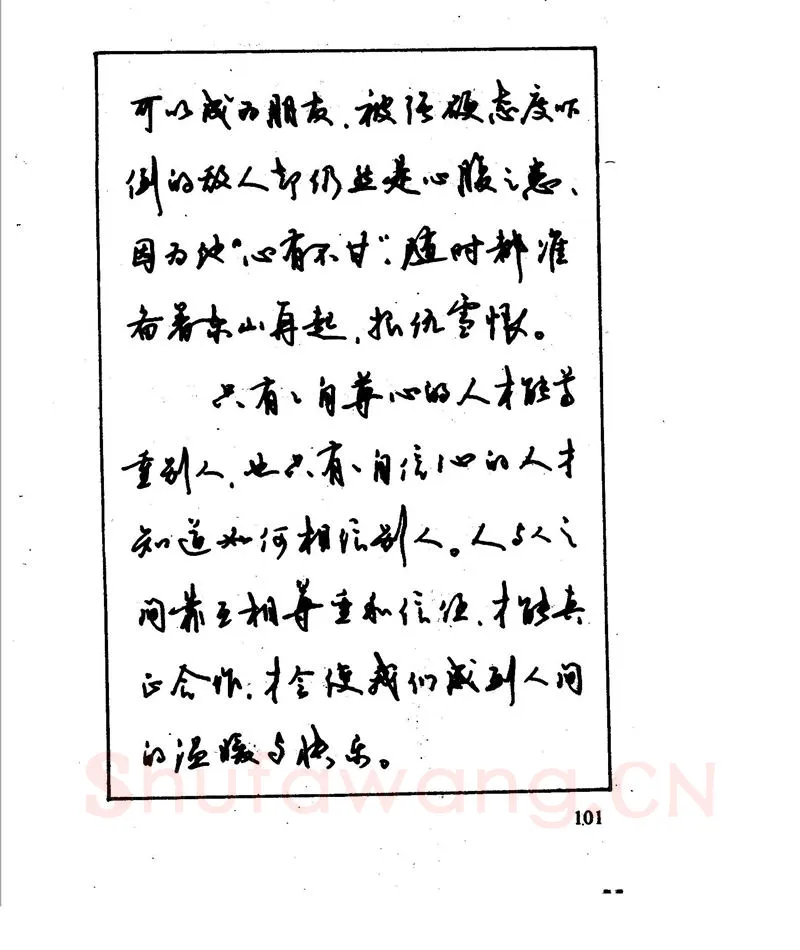 可以成为朋友，被强硬态度吓
倒的敌人却仍然是心腹之患、
因为他“心有不甘”，随时都准
备着东山再起，报仇雪恨。
只有有自尊心的人才能尊
重别人，也只有有自信心的人才
知道如何相信别人。人与人之
间靠互相尊重和信任，才能真
正合作，才会使我们感到人间
的温暖与快乐。
Shufawang.CN
101